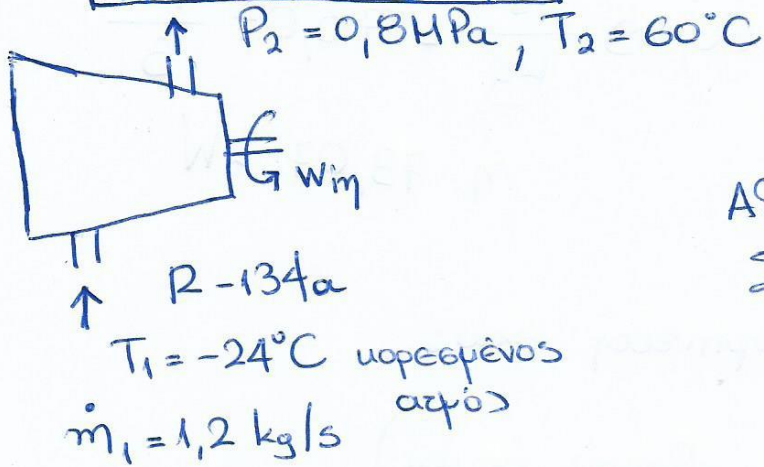 P₂ = 0,8 MPa, T₂ = 60°C
Win
R-134a
T₁ = -24°C κορεσμένος
ατμός
ṁ₁ = 1,2 kg/s